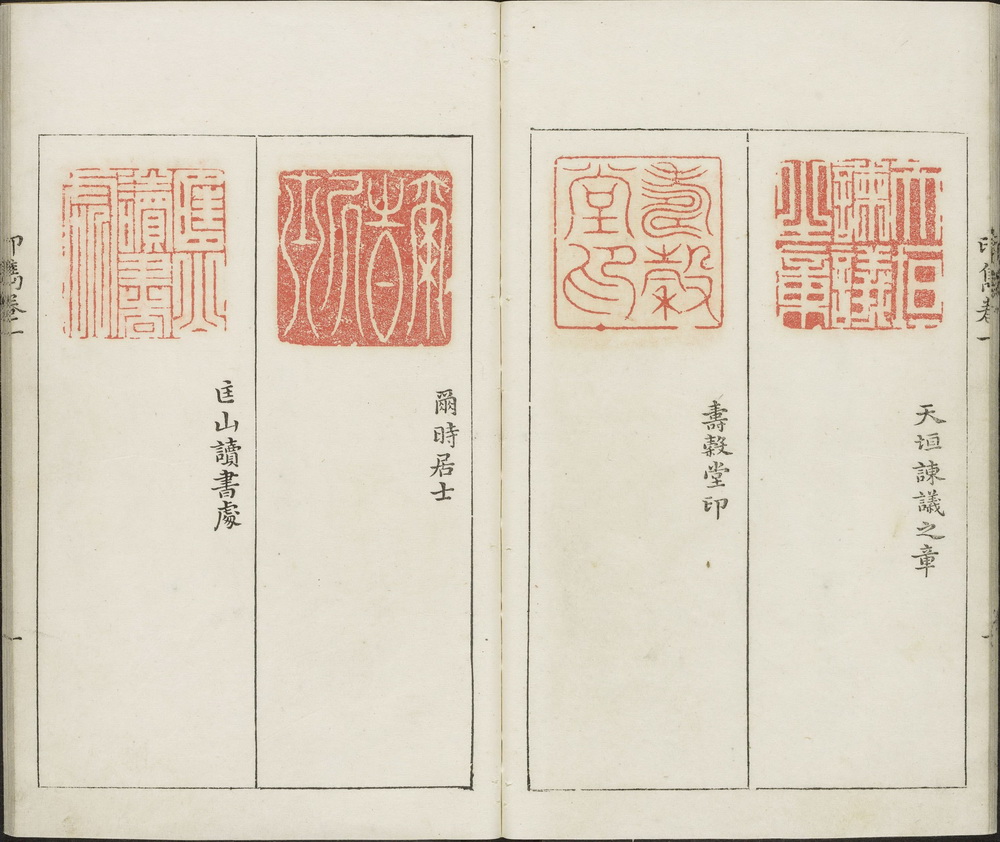 天垣諫議之章
壽穀堂印
爾時居士
匡山讀書處
印雋卷一
一
印雋卷二
一